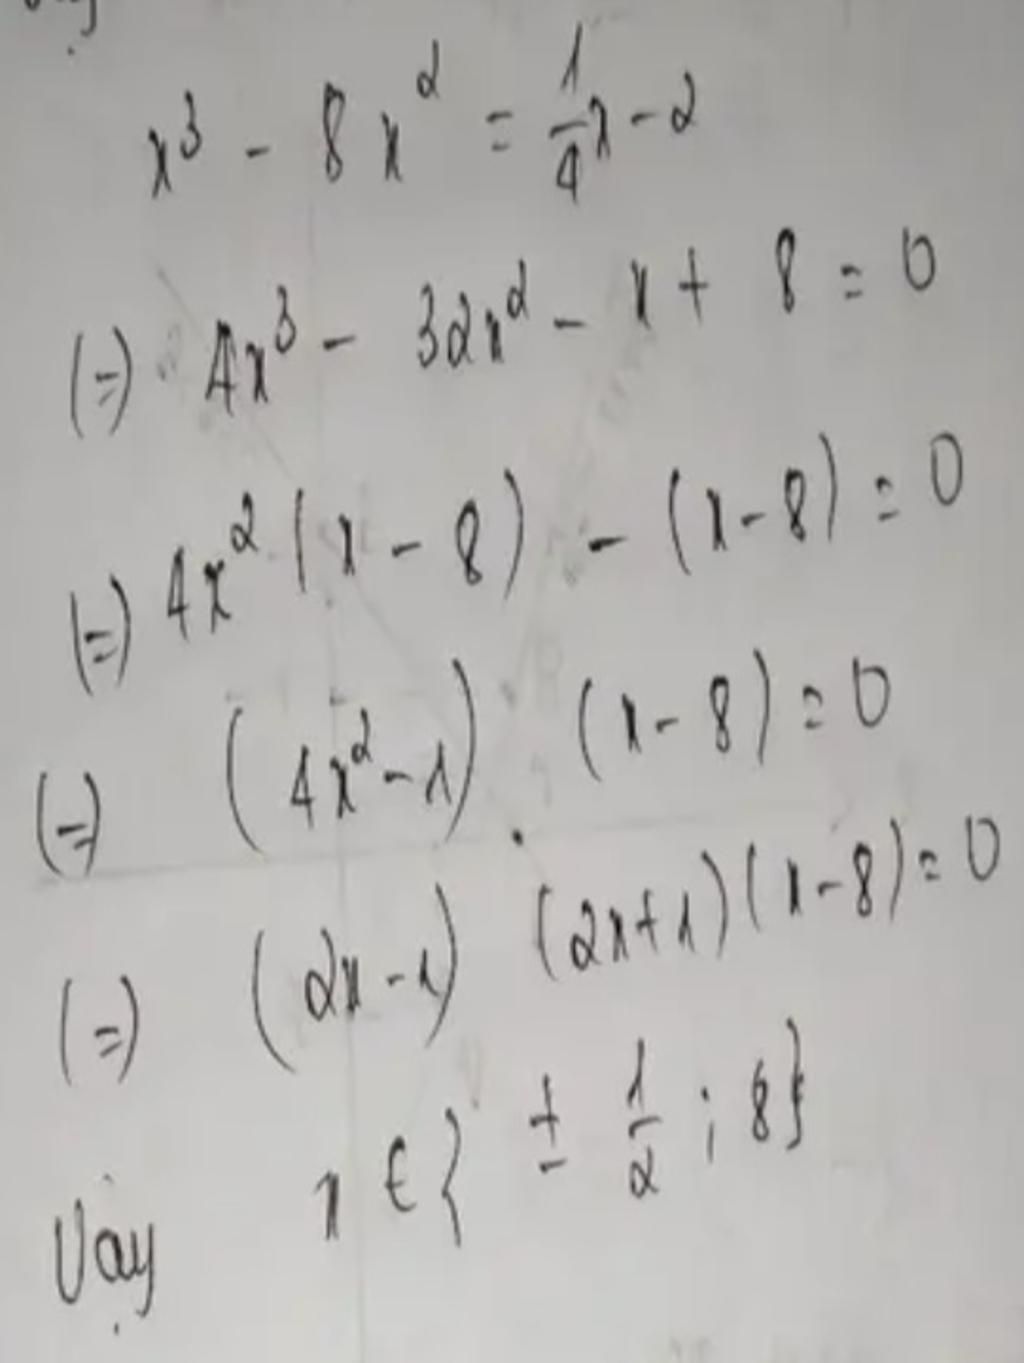 x³ - 8x² = 1/4 x - 2
(=) 4x³ - 32x² - x + 8 = 0
(=) 4x² (x - 8) - (x - 8) = 0
(=) (4x² - 1) (x - 8) = 0
(=) (2x - 1) (2x + 1) (x - 8) = 0
Vậy x ∈ { ± 1/2 ; 8 }